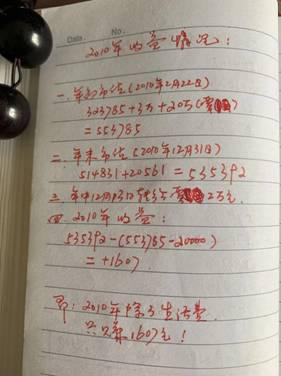 Date. No.
2010年收益情况:
一. 年初市值(2010年2月22日)
323785+3万+20万(
=553785
二. 年末市值(2010年12月31日)
514831+20561=535392
三. 年中12月 2万元
四. 2010年收益:
535392-(553785-20000)
=+1607.
即: 2010年 了生活费
只 1607元!